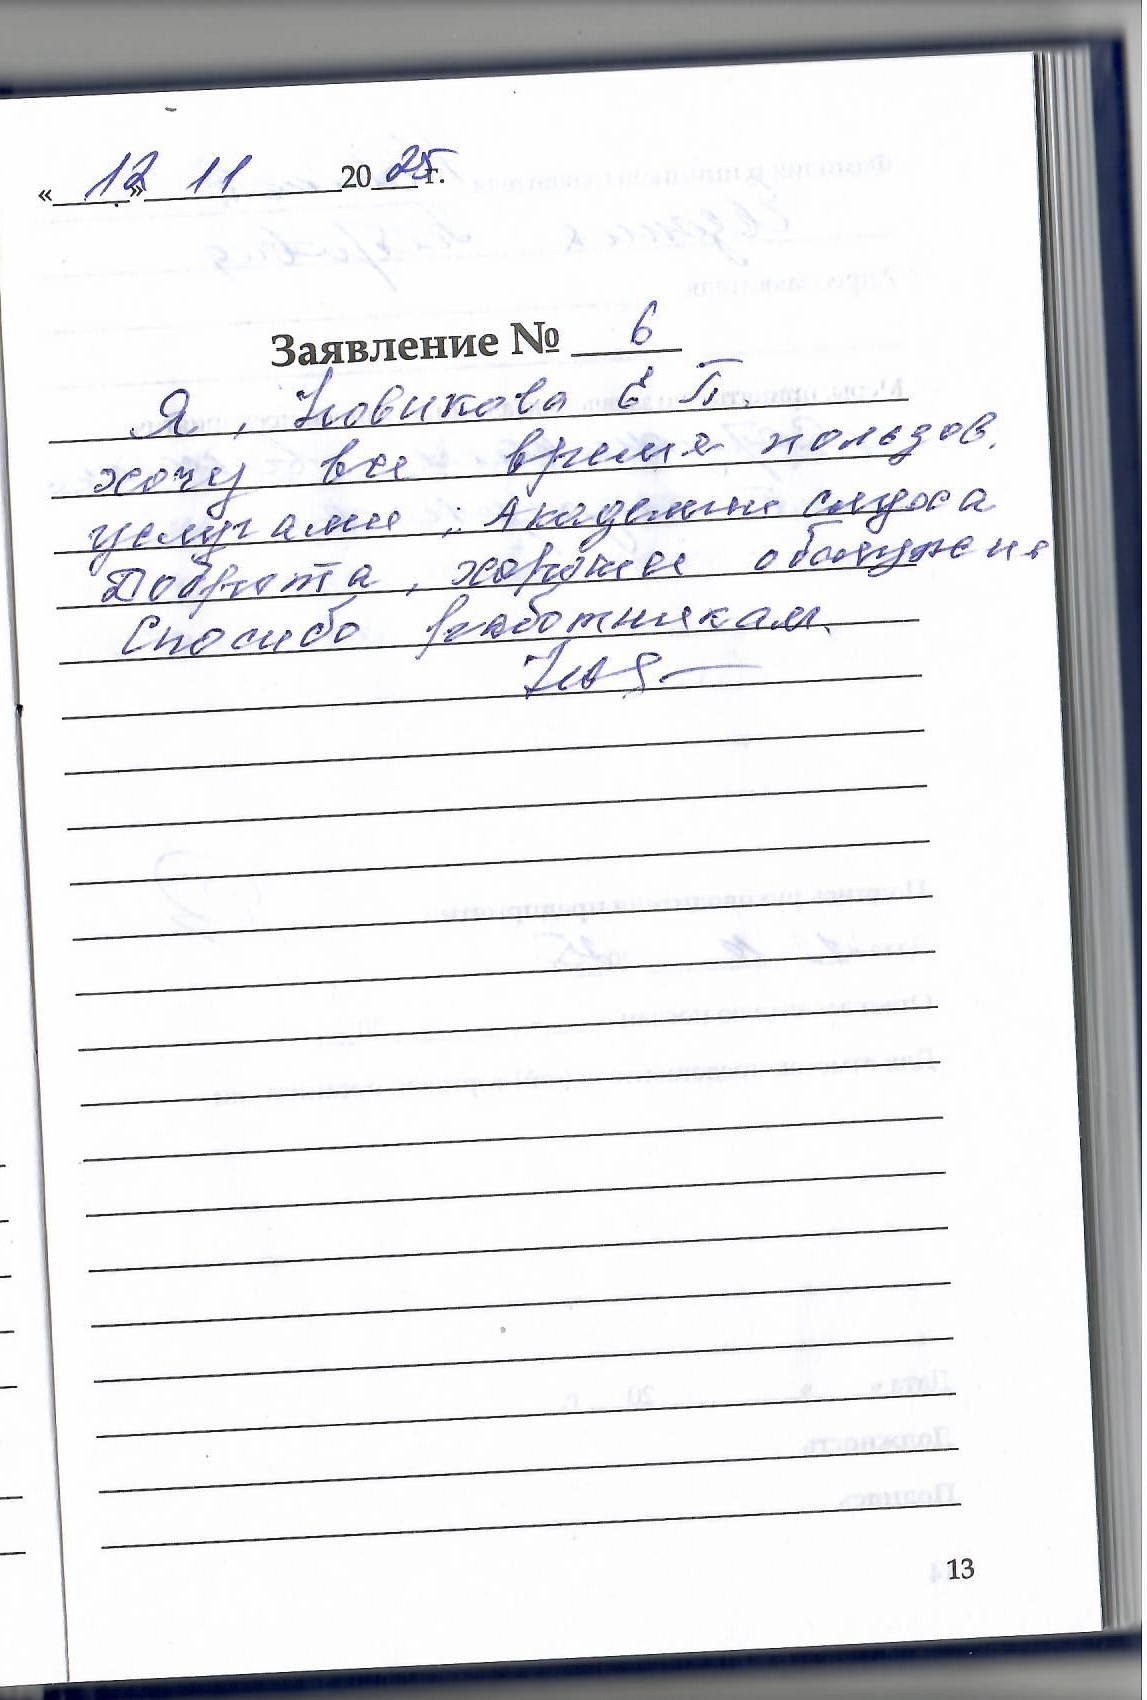 « 12 » 11 20 25 г.
Заявление № 6
Я, Новикова Е П.
хочу все время пользов.
услугами ; Академии слуха
Доброта, хорошее обслужение
Спосибо работникам.
13